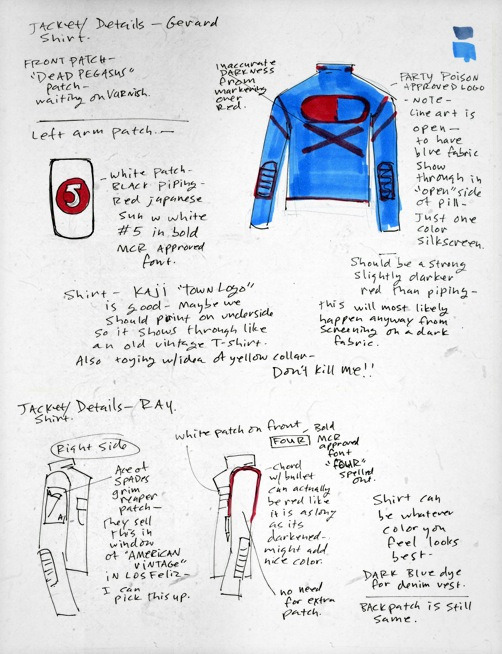 JACKET/ DETAILS - GERARD
SHIRT.
FRONT PATCH-
"DEAD PEGASUS"
PATCH-
waiting on VARNISH.
Left arm patch.-
5
White patch-
BLACK PIPING-
Red Japanese
Sun w white
#5 in bold
MCR APPROVED
font.
Inaccurate
DARKNESS
from
markering
over
Red.
PARTY POISON
APPROVED LOGO
- NOTE -
Line art is
open -
to have
blue fabric
show
through in
"open" side
of pill-
Just one
color
silkscreen.
Should be a strong
slightly darker
red than piping-
this will most likely
happen anyway from
screening on a dark
fabric.
Shirt - KAJI "TOWN LOGO"
is good- maybe we
should print on underside
so it shows through like
an old vintage T-shirt.
Also toying w/idea of yellow collar-
Don't kill me!!
JACKET/ DETAILS- RAY.
SHIRT.
Right side
Ace of
SPADES
grim
reaper
patch-
they sell
this in
window
of "AMERICAN
VINTAGE"
in LOS FELIZ-
I can
pick this up.
white patch on front -
FOUR
Bold
MCR
approved
font
"FOUR"
spelled
out.
Chord
w/ bullet
can actually
be red like
it is as long
as its
darkened-
might add
nice color.
no need
for extra
patch.
Shirt can
be whatever
color you
feel looks
best-
DARK Blue dye
for denim vest.
BACKpatch is still
same.